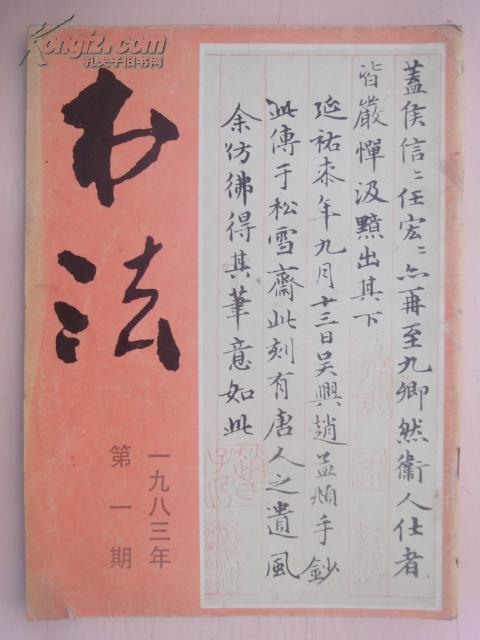 Kongfz.com
孔夫子旧书网
书法
一九八三年
第一期
蓋侯信〻任宏〻亦再至九卿然衞人仕者
皆嚴憚汲黯出其下
延祐柒年九月十三日吴興趙孟頫手鈔
此傳于松雪齋此刻有唐人之遺風
余仿彿得其筆意如此